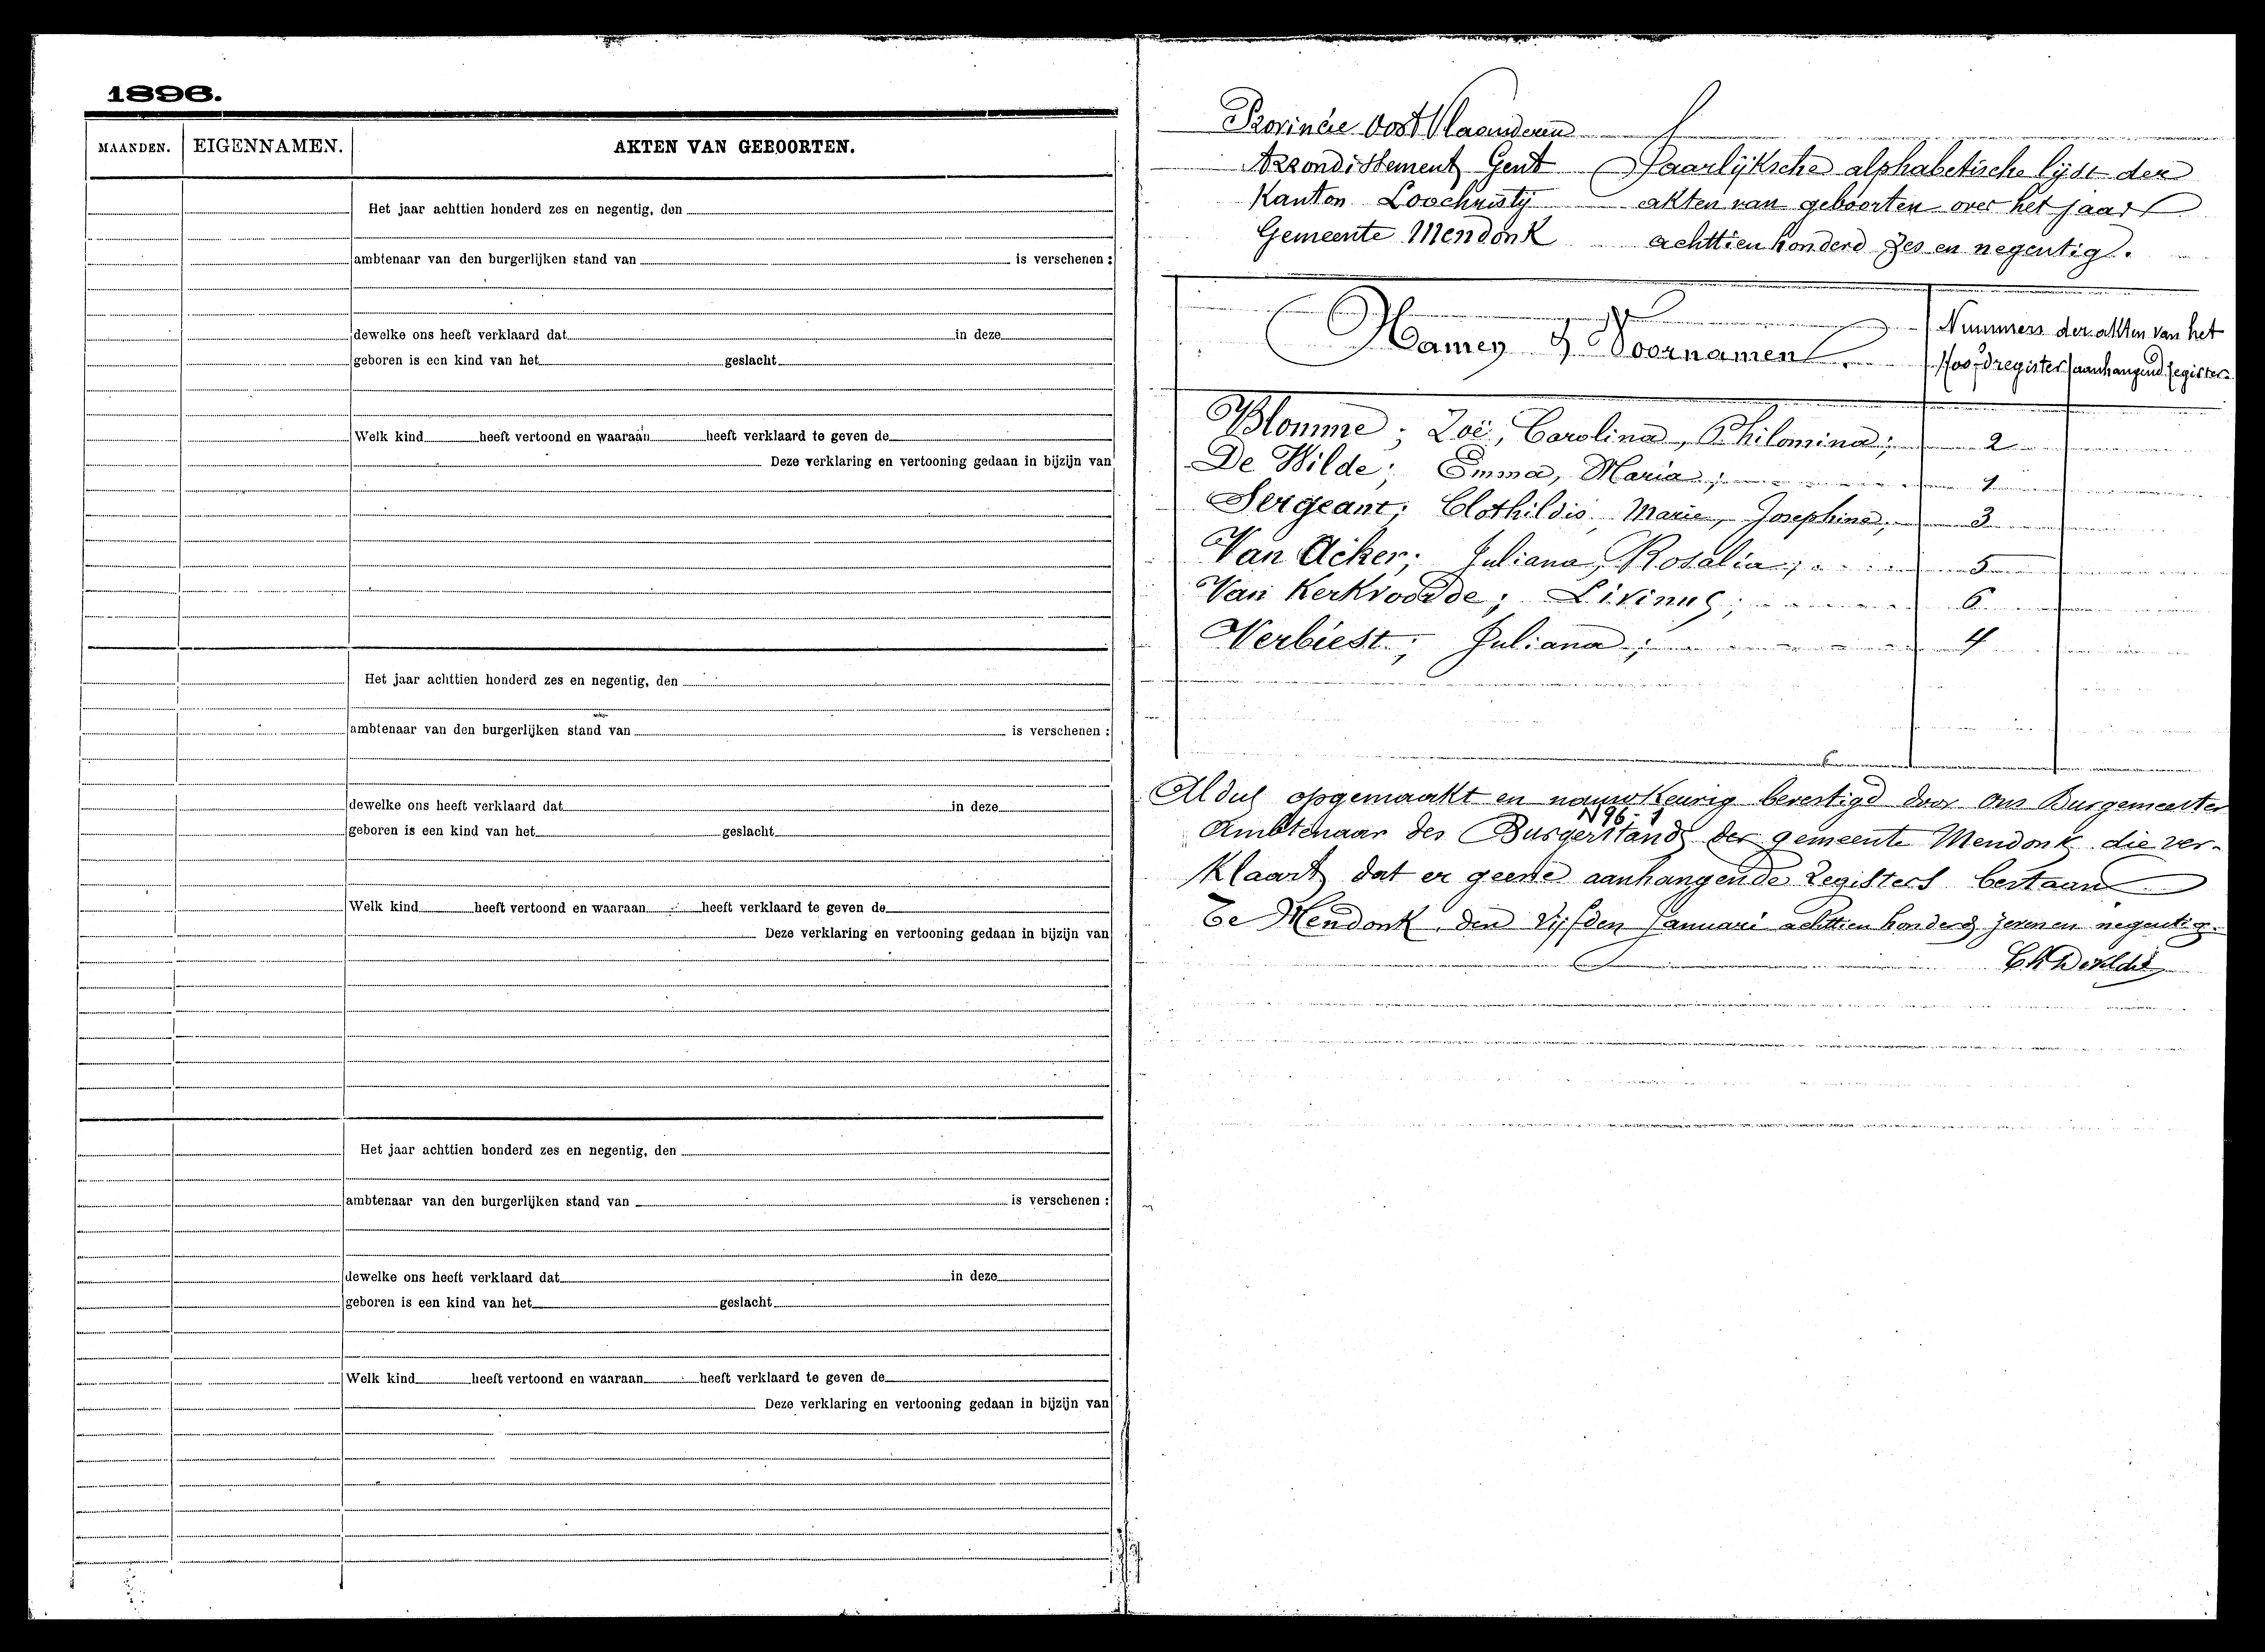 1896.
MAANDEN. EIGENNAMEN. AKTEN VAN GEBOORTEN.
Het jaar achttien honderd zes en negentig, den
ambtenaar van den burgerlijken stand van is verschenen :
dewelke ons heeft verklaard dat in deze
geboren is een kind van het geslacht
Welk kind heeft vertoond en waaraan heeft verklaard te geven de
Deze verklaring en vertooning gedaan in bijzijn van
Het jaar achttien honderd zes en negentig, den
ambtenaar van den burgerlijken stand van is verschenen :
dewelke ons heeft verklaard dat in deze
geboren is een kind van het geslacht
Welk kind heeft vertoond en waaraan heeft verklaard te geven de
Deze verklaring en vertooning gedaan in bijzijn van
Het jaar achttien honderd zes en negentig, den
ambtenaar van den burgerlijken stand van is verschenen :
dewelke ons heeft verklaard dat in deze
geboren is een kind van het geslacht
Welk kind heeft vertoond en waaraan heeft verklaard te geven de
Deze verklaring en vertooning gedaan in bijzijn van
Provincie Oost Vlaenderen
Arrondissement Gent
Kanton Loochristy
Gemeente Mendonk
Jaarlijksche alphabetische lijst der
akten van geboorten over het jaar
achttien honderd zes en negentig.
Namen & Voornamen.
Nummers der akten van het
Hoofdregister aanhangend register
Blomme ; Zoë, Carolina, Philomina ; 2
De Wilde ; Emma, Maria ; 1
Sergeant ; Clothildis, Marie, Josephine, 3
Van Acker ; Juliana, Rosalia ; 5
Van Kerkvoorde ; Livinus ; 6
Verbiest ; Juliana ; 4
Aldus opgemaakt en nauwkeurig bevestigd door ons Burgemeester
N96-1
Ambtenaar des Burgerstands der gemeente Mendonk die ver-
klaart dat er geene aanhangende Registers bestaan
Te Mendonk, den vijfden Januari achttien honderd zeven en negentig.